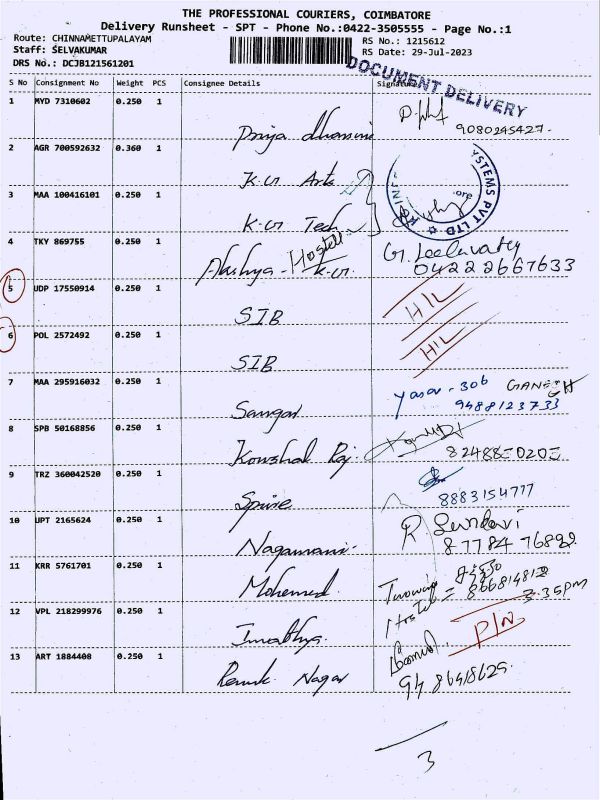 THE PROFESSIONAL COURIERS, COIMBATORE
Delivery Runsheet - SPT - Phone No.:0422-3505555 - Page No.:1
Route: CHINNAMETTUPALAYAM
Staff: SELVAKUMAR
DRS No.: DCJB121561201
RS No.: 1215612
RS Date: 29-Jul-2023
DOCUMENT DELIVERY
S No Consignment No Weight PCS Consignee Details Signature
1 MYD 7310602 0.250 1
Priya dharsini 9080245427.
2 AGR 700592632 0.360 1
K.G Arts
3 MAA 100416101 0.250 1
K.G Tech
YSTEMS PVT LTD
4 TKY 869755 0.250 1
Akshya - Hostel K.G. G. Leelavathy
04222667633
5 UDP 17550914 0.250 1
SIB HIL
6 POL 2572492 0.250 1
SIB HIL
7 MAA 295916032 0.250 1
Sangar GANESH
9488123733
8 SPB 50168856 0.250 1
Kowshal Raj
9 TRZ 360042520 0.250 1
Spire 8883154777
10 UPT 2165624 0.250 1
Nagamani. 87784 76892
11 KRR 5761701 0.250 1
Mohemed Hostel = 3.35pm
12 VPL 218299976 0.250 1
Imathya. P/N
13 ART 1884408 0.250 1
Nagar
3